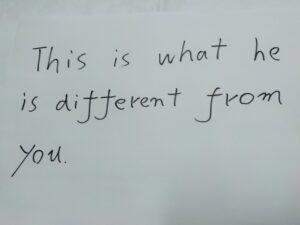 This is what he
is different from
you.